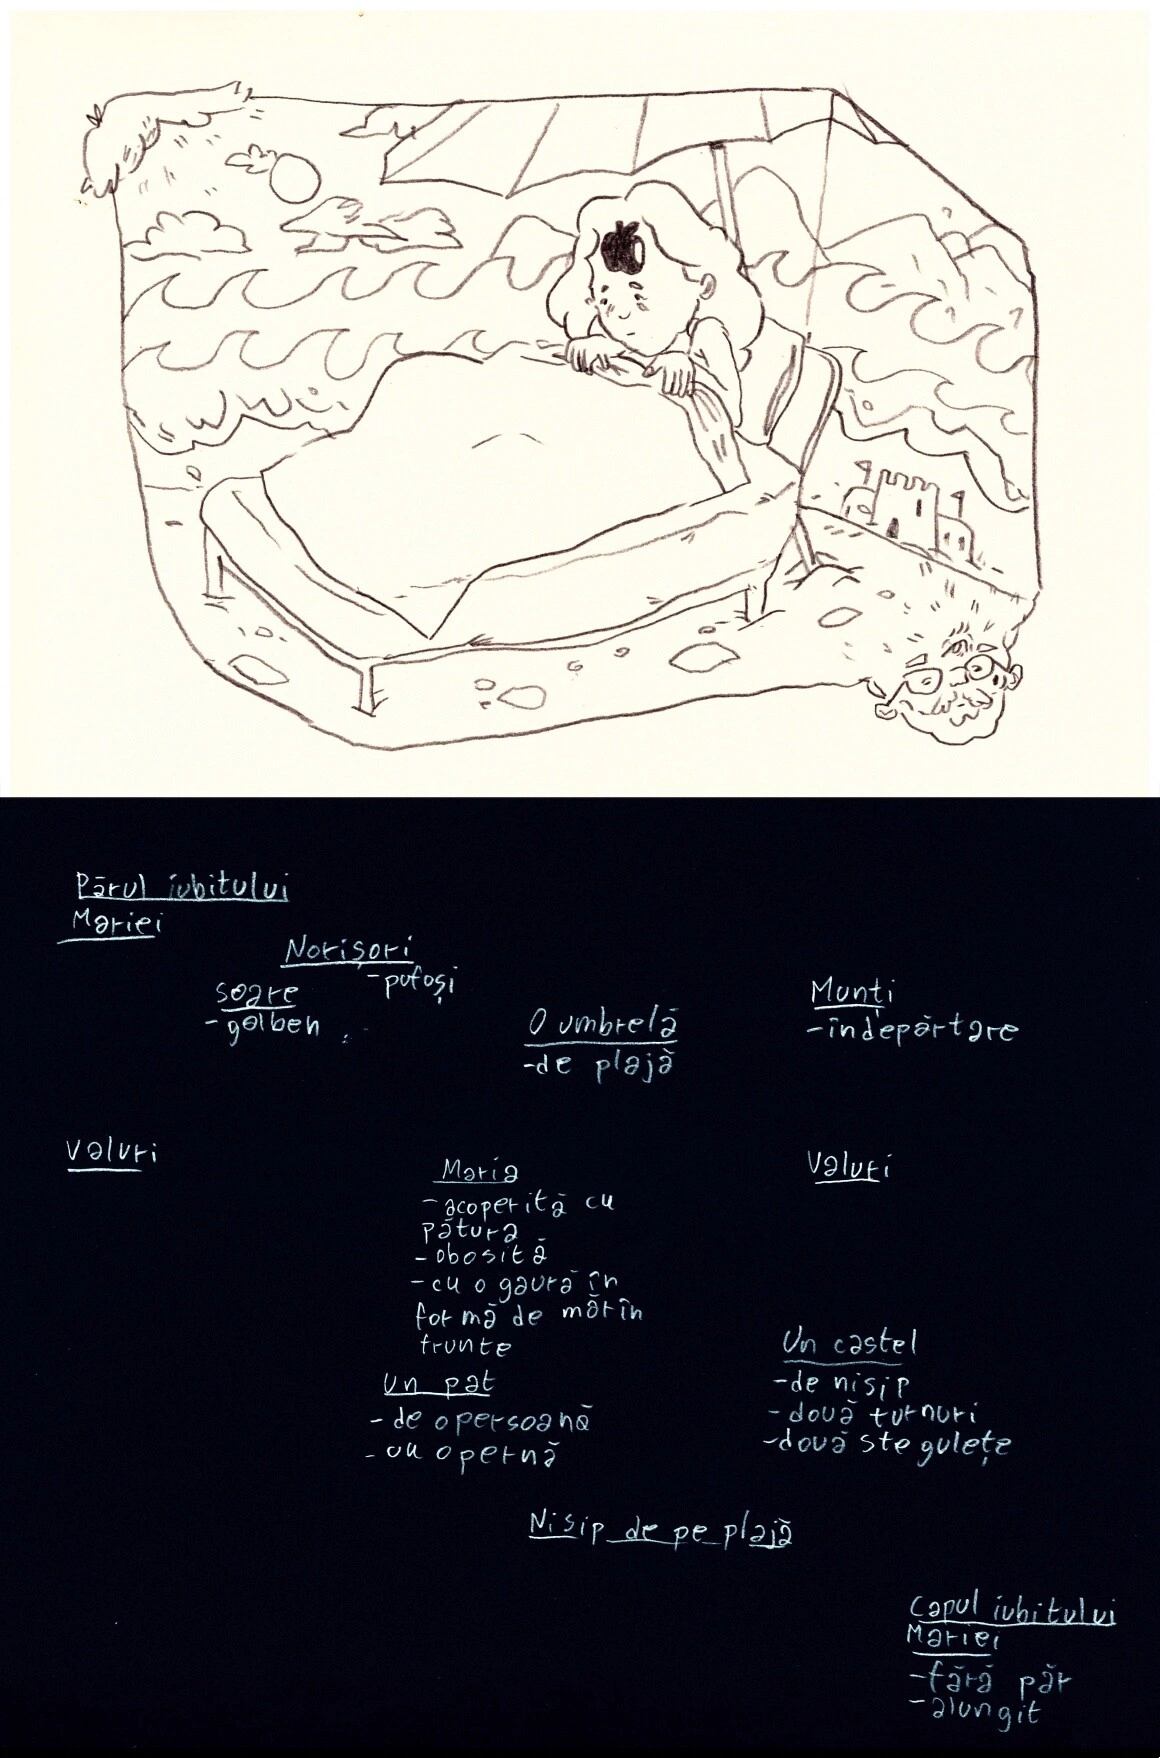 Părul iubitului
Mariei
Norișori
-pufoși
soare
-galben
O umbrelă
-de plajă
Munți
-îndepărtare
Valuri
Maria
-acoperită cu
pătura
-obosită
-cu o gaură în
formă de măr în
frunte
Valuri
Un pat
-de o persoană
-cu o pernă
Un castel
-de nisip
-două turnuri
-două stegulețe
Nisip de pe plajă
Capul iubitului
Mariei
-fără păr
-alungit